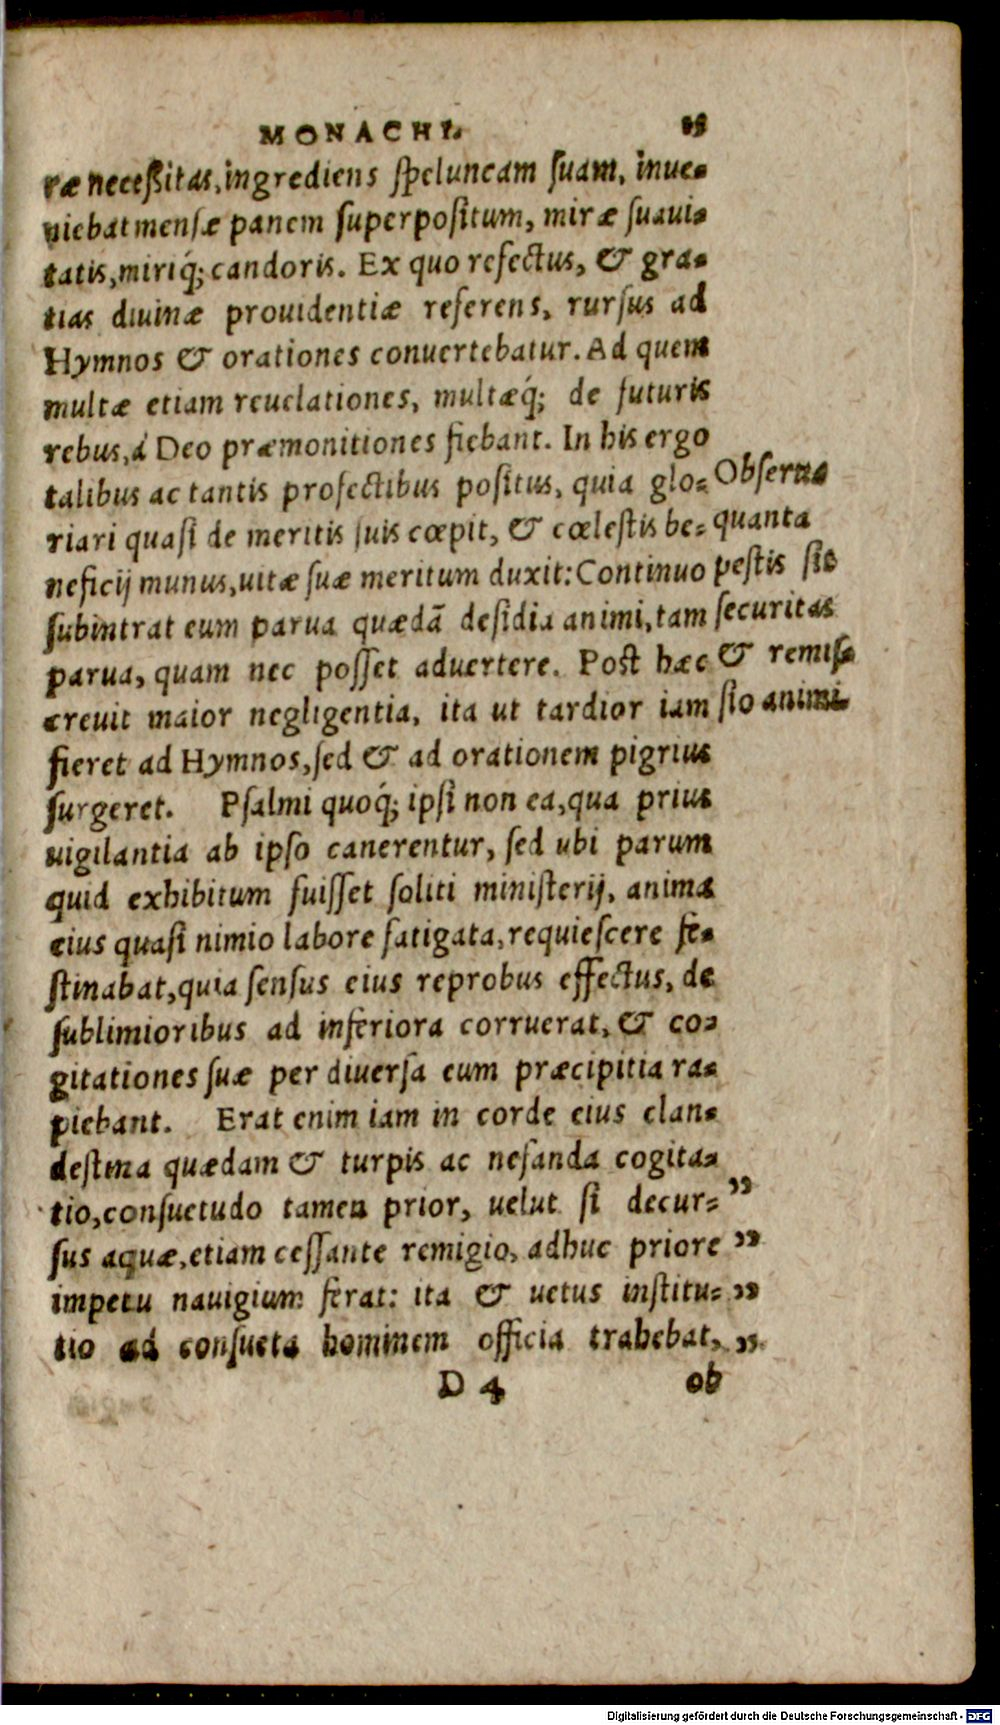 MONACHI.
ræ neceßitas, ingrediens ſpeluncam ſuam, inue-
niebat menſæ panem ſuperpoſitum, miræ ſuaui-
tatis, miriq́; candoris. Ex quo refectus, & gra-
tias diuinæ prouidentiæ referens, rurſus ad
Hymnos & orationes conuertebatur. Ad quem
multæ etiam reuelationes, multæq́; de futuris
rebus, à Deo præmonitiones fiebant. In his ergo
talibus ac tantis profectibus poſitus, quia glo-
riari quaſi de meritis ſuis cœpit, & cœleſtis be-
neficij munus, uitæ ſuæ meritum duxit: Continuo
ſubintrat eum parua quædā deſidia animi, tam
parua, quam nec poſſet aduertere. Poſt hæc
creuit maior negligentia, ita ut tardior iam
fieret ad Hymnos, ſed & ad orationem pigrius
ſurgeret. Pſalmi quoq́; ipſi non ea, qua prius
uigilantia ab ipſo canerentur, ſed ubi parum
quid exhibitum fuiſſet ſoliti miniſterij, anima
eius quaſi nimio labore fatigata, requieſcere fe-
ſtinabat, quia ſenſus eius reprobus effectus, de
ſublimioribus ad inferiora corruerat, & co-
gitationes ſuæ per diuerſa eum præcipitia ra-
piebant. Erat enim iam in corde eius clan-
deſtina quædam & turpis ac nefanda cogita-
tio, conſuetudo tamen prior, uelut ſi decur- ”
ſus aquæ, etiam ceſſante remigio, adhuc priore ”
impetu nauigium ferat: ita & uetus inſtitu- ”
tio ad conſueta hominem officia trahebat, ”
D 4 ob
Obſerua
quanta
peſtis ſit
ſecuritas
& remiſ-
ſio animi.
Digitalisierung gefördert durch die Deutsche Forschungsgemeinschaft - DFG